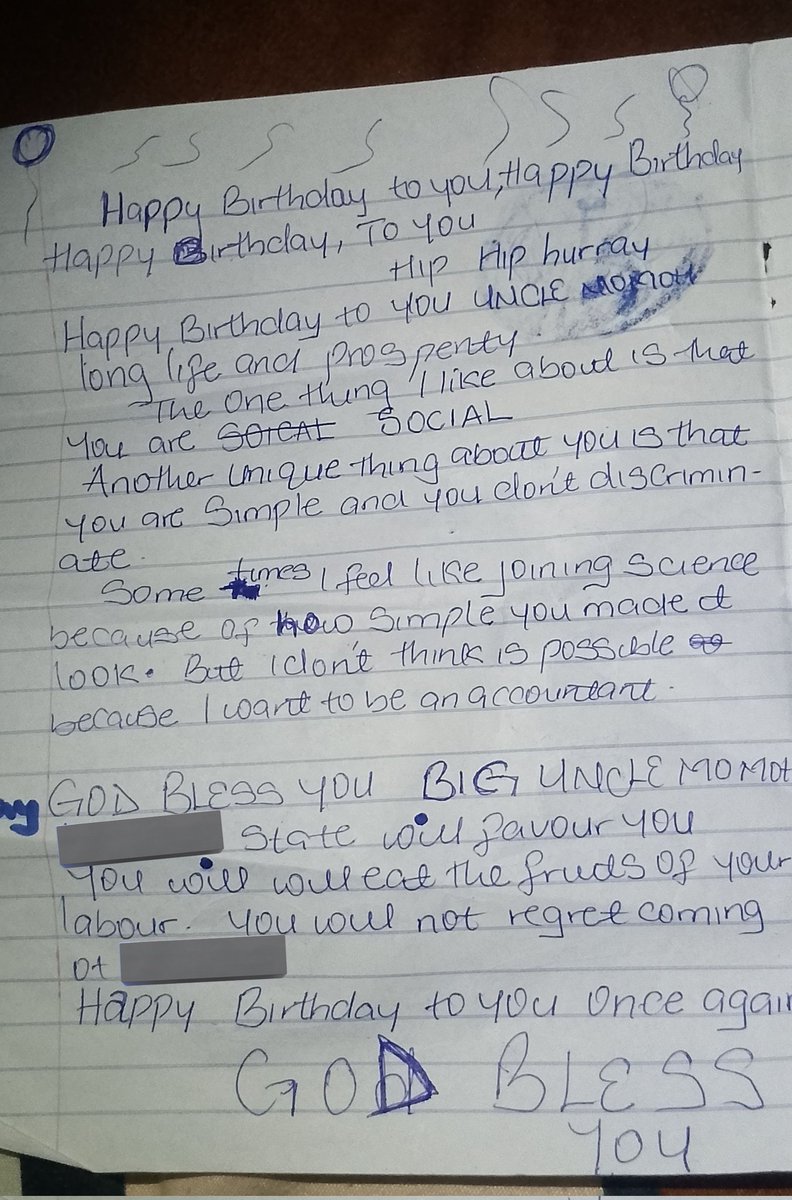 Happy Birthday to you, Happy Birthday
Happy Birthday, To you
Hip Hip hurray
Happy Birthday to you UNCLE MOMOH
long life and prosperity.
The one thing I like about is that
you are SOICAL SOCIAL
Another unique thing about you is that
you are simple and you don't discrimin-
ate.
Some times I feel like joining science
because of how simple you made it
look. But I don't think is possible
because I want to be an accountant.
GOD BLESS you BIG UNCLE MOMOH
State will favour you
You will will eat the fruits of your
labour. You will not regret coming
ot
Happy Birthday to you once again
GOD BLESS
you